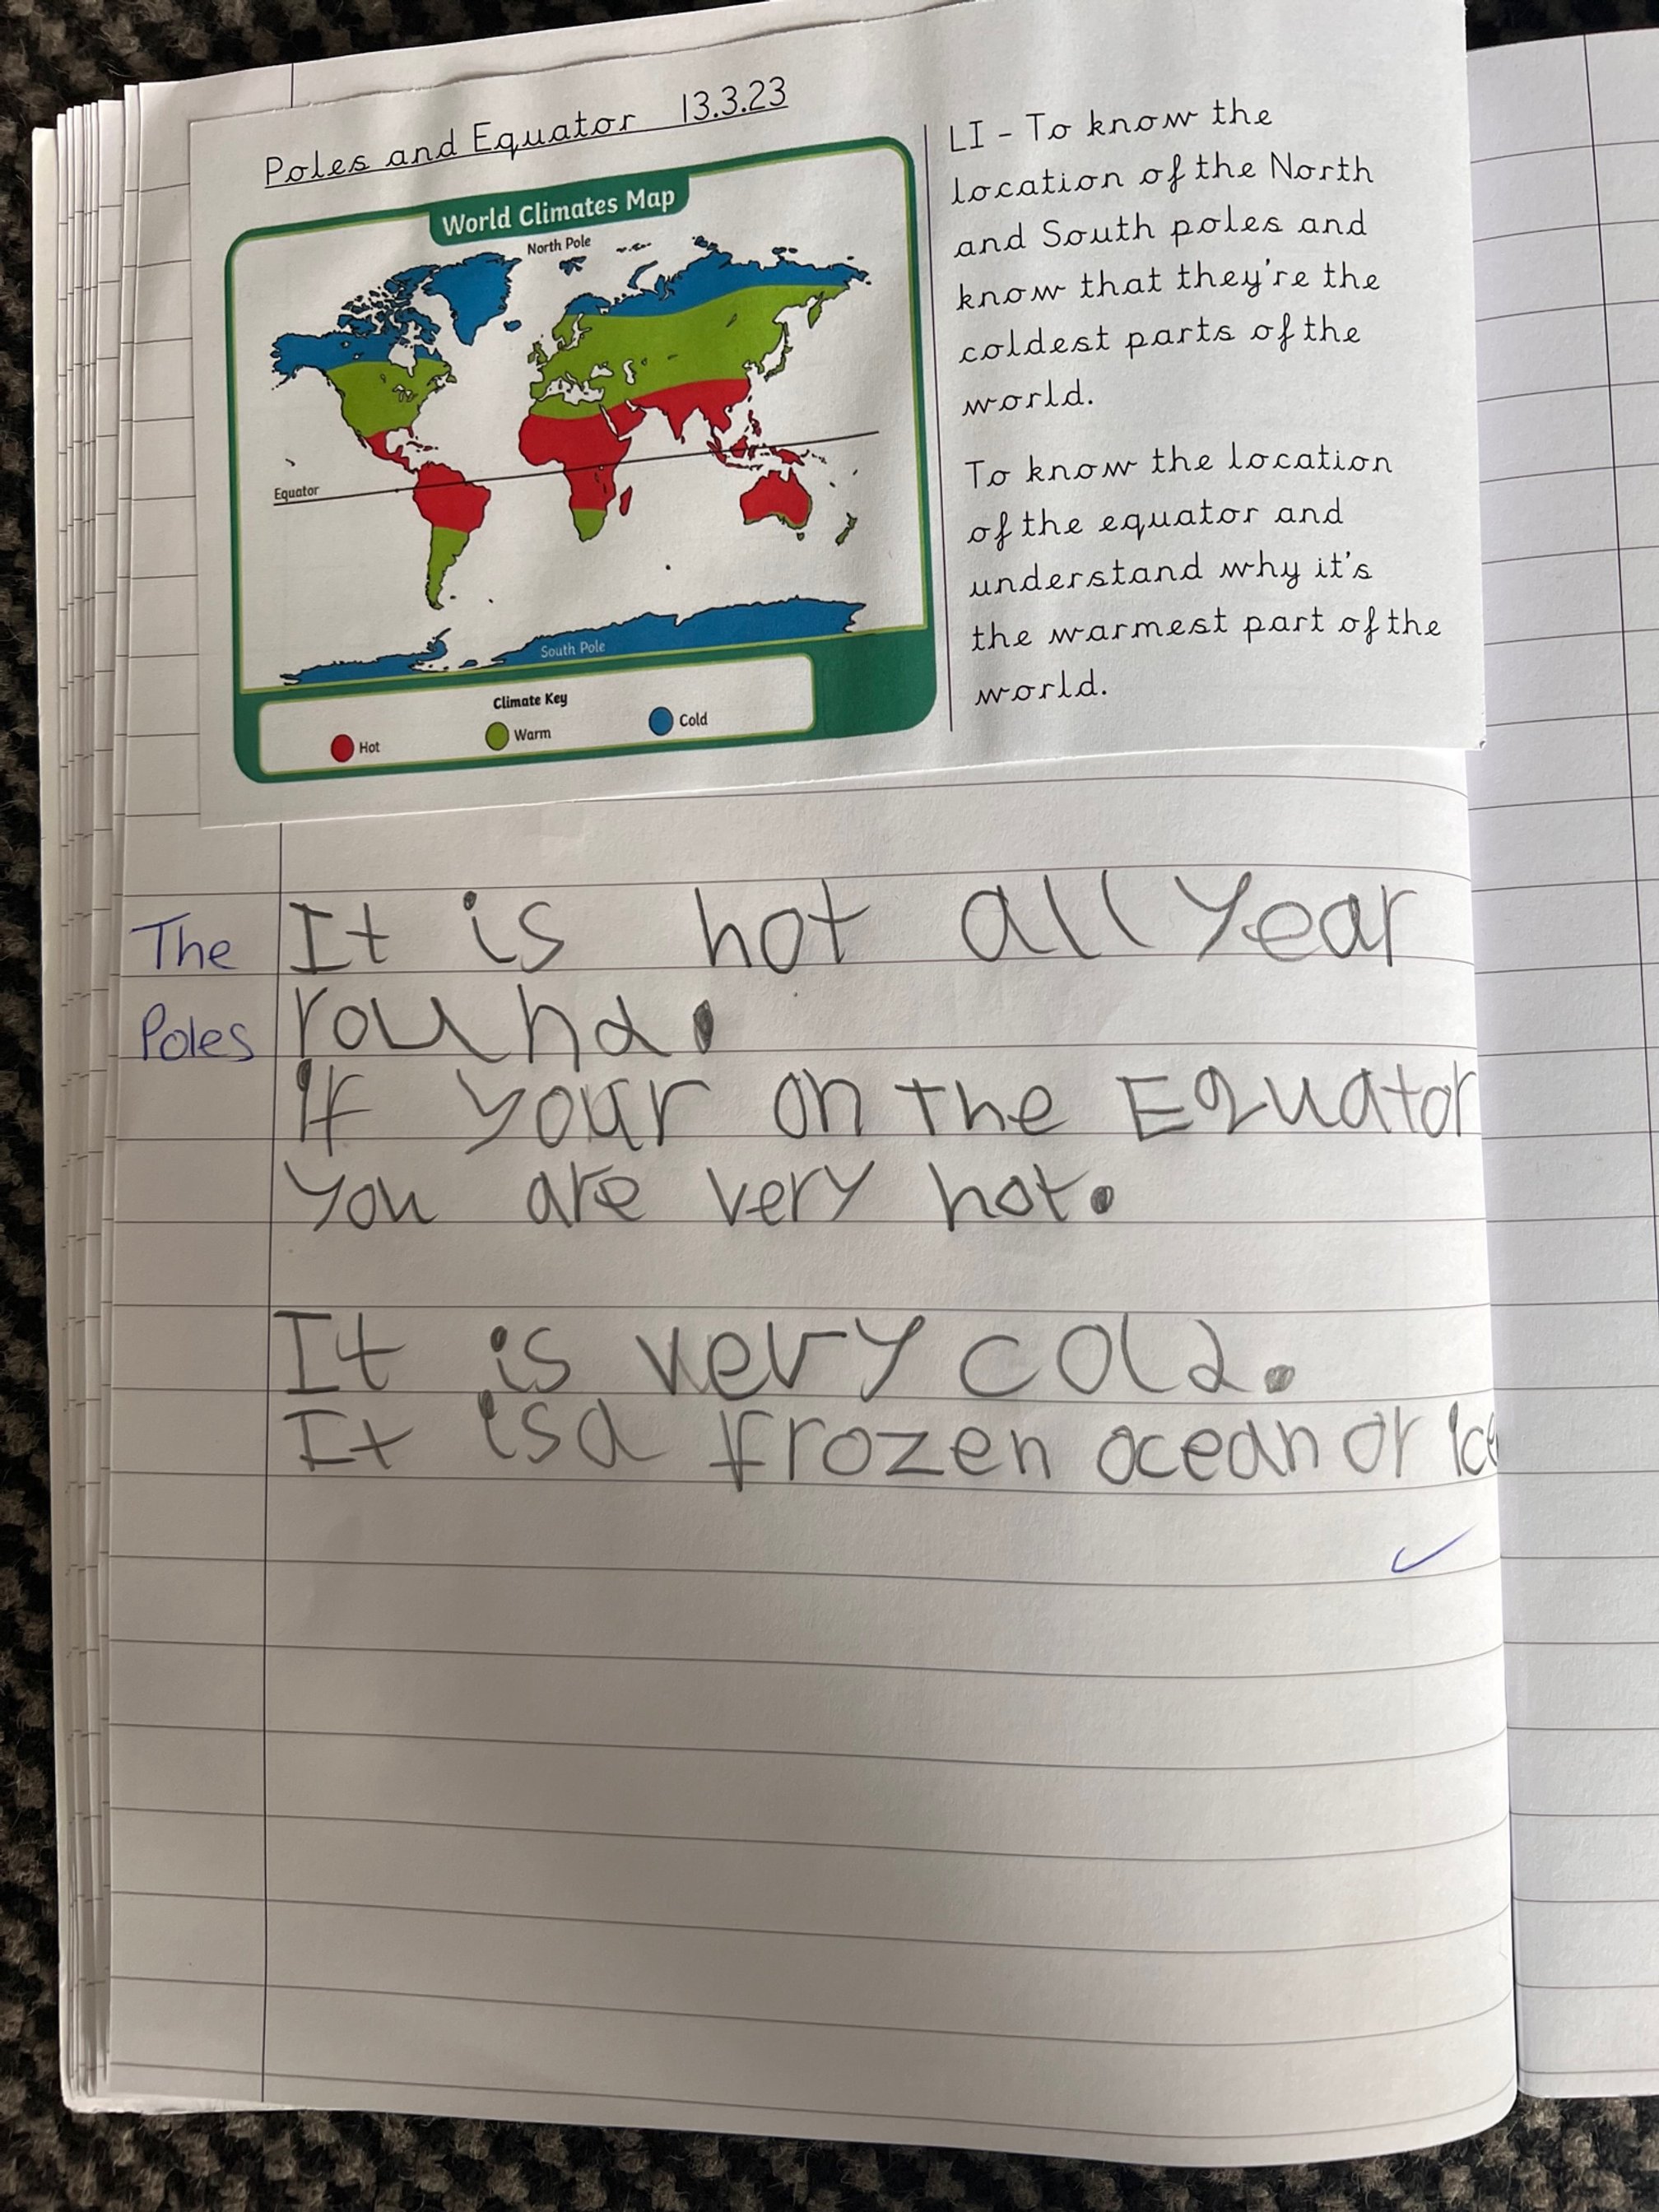 Poles and Equator 13.3.23
World Climates Map
North Pole
Equator
South Pole
Climate Key
Hot
Warm
Cold
LI - To know the
location of the North
and South poles and
know that they're the
coldest parts of the
world.
To know the location
of the equator and
understand why it's
the warmest part of the
world.
The
Poles
It is hot all year
round.
If your on the Equator
you are very hot.
It is very cold.
It is a frozen ocean or ice